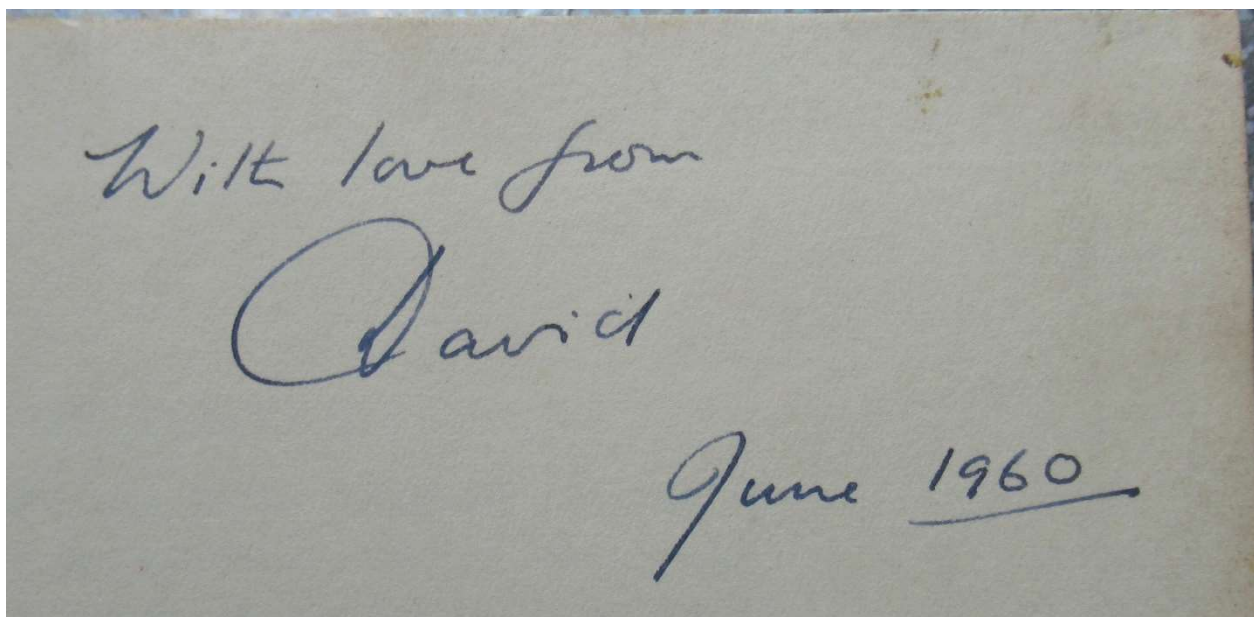 With love from
David
June 1960